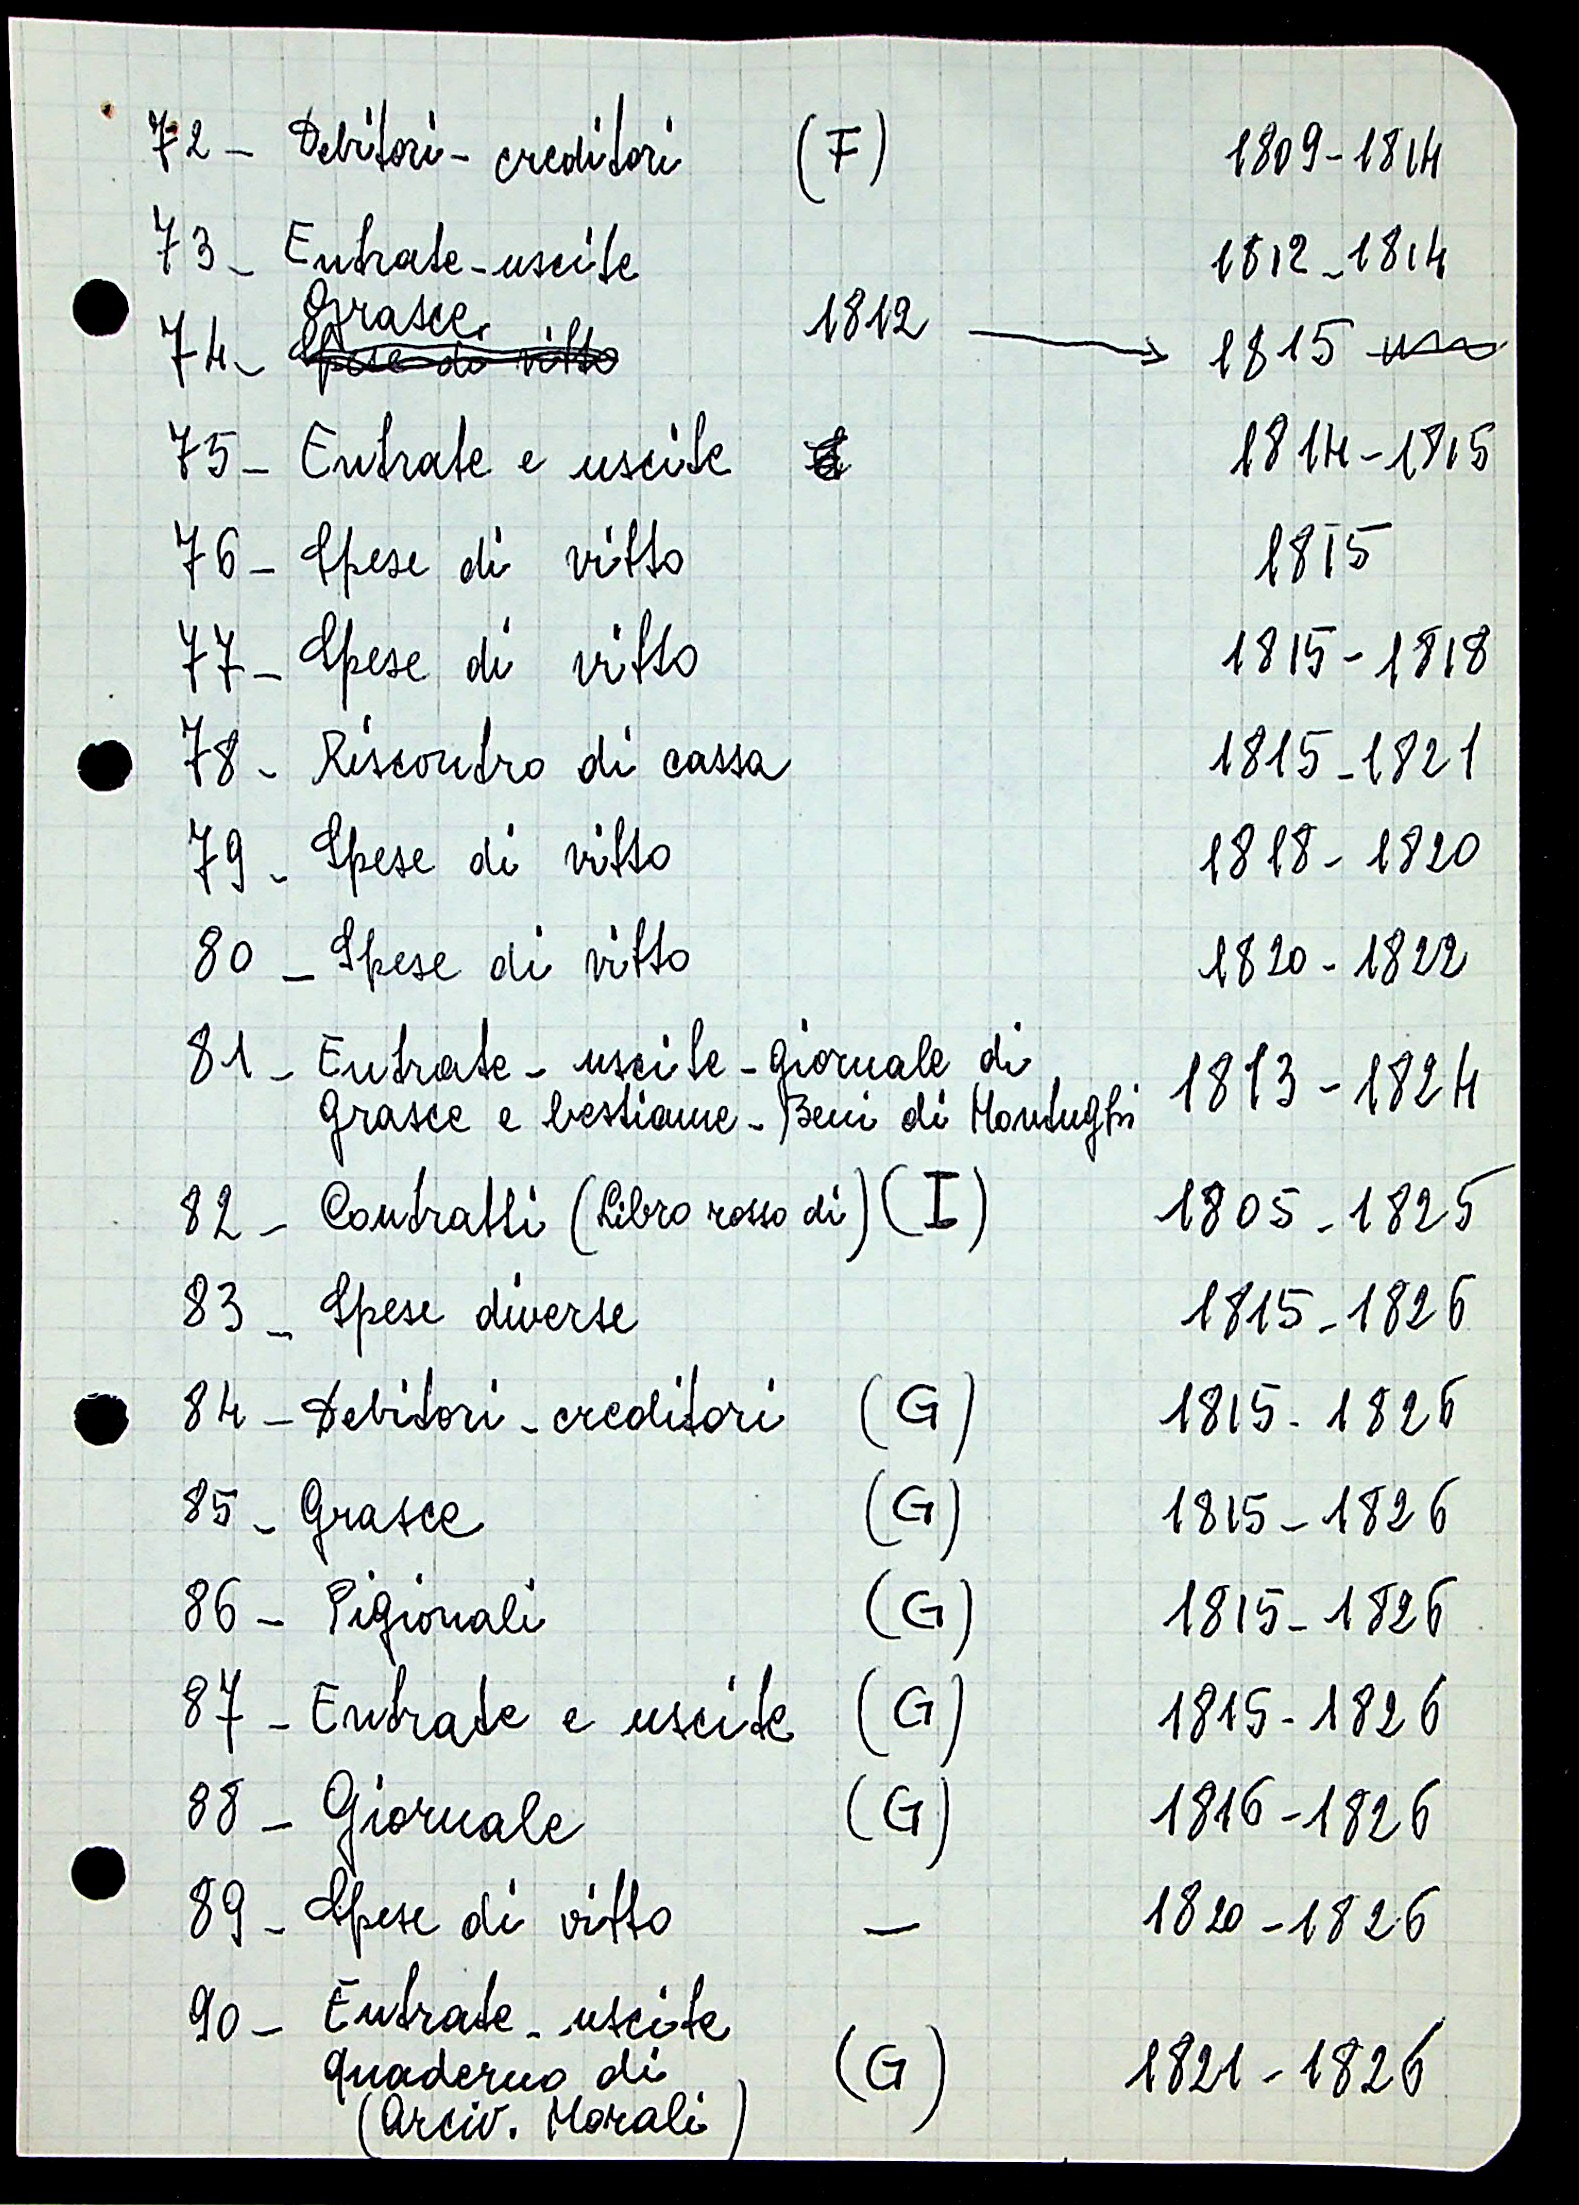 72 - Debitori - creditori (F) 1809-1814
73 - Entrate - uscite 1812-1814
Grasce
74 - Spese di vitto 1812 → 1815
75 - Entrate e uscite 1814-1815
76 - Spese di vitto 1815
77 - Spese di vitto 1815-1818
78 - Riscontro di cassa 1815-1821
79 - Spese di vitto 1818-1820
80 - Spese di vitto 1820-1822
81 - Entrate - uscite - giornale di
grasce e bestiame - Beni di Montughi 1813-1824
82 - Contratti (Libro rosso di) (I) 1805-1825
83 - Spese diverse 1815-1826
84 - Debitori - creditori (G) 1815-1826
85 - Grasce (G) 1815-1826
86 - Pigionali (G) 1815-1826
87 - Entrate e uscite (G) 1815-1826
88 - Giornale (G) 1816-1826
89 - Spese di vitto — 1820-1826
90 - Entrate - uscite
quaderno di (G) 1821-1826
(Arciv. Morali)